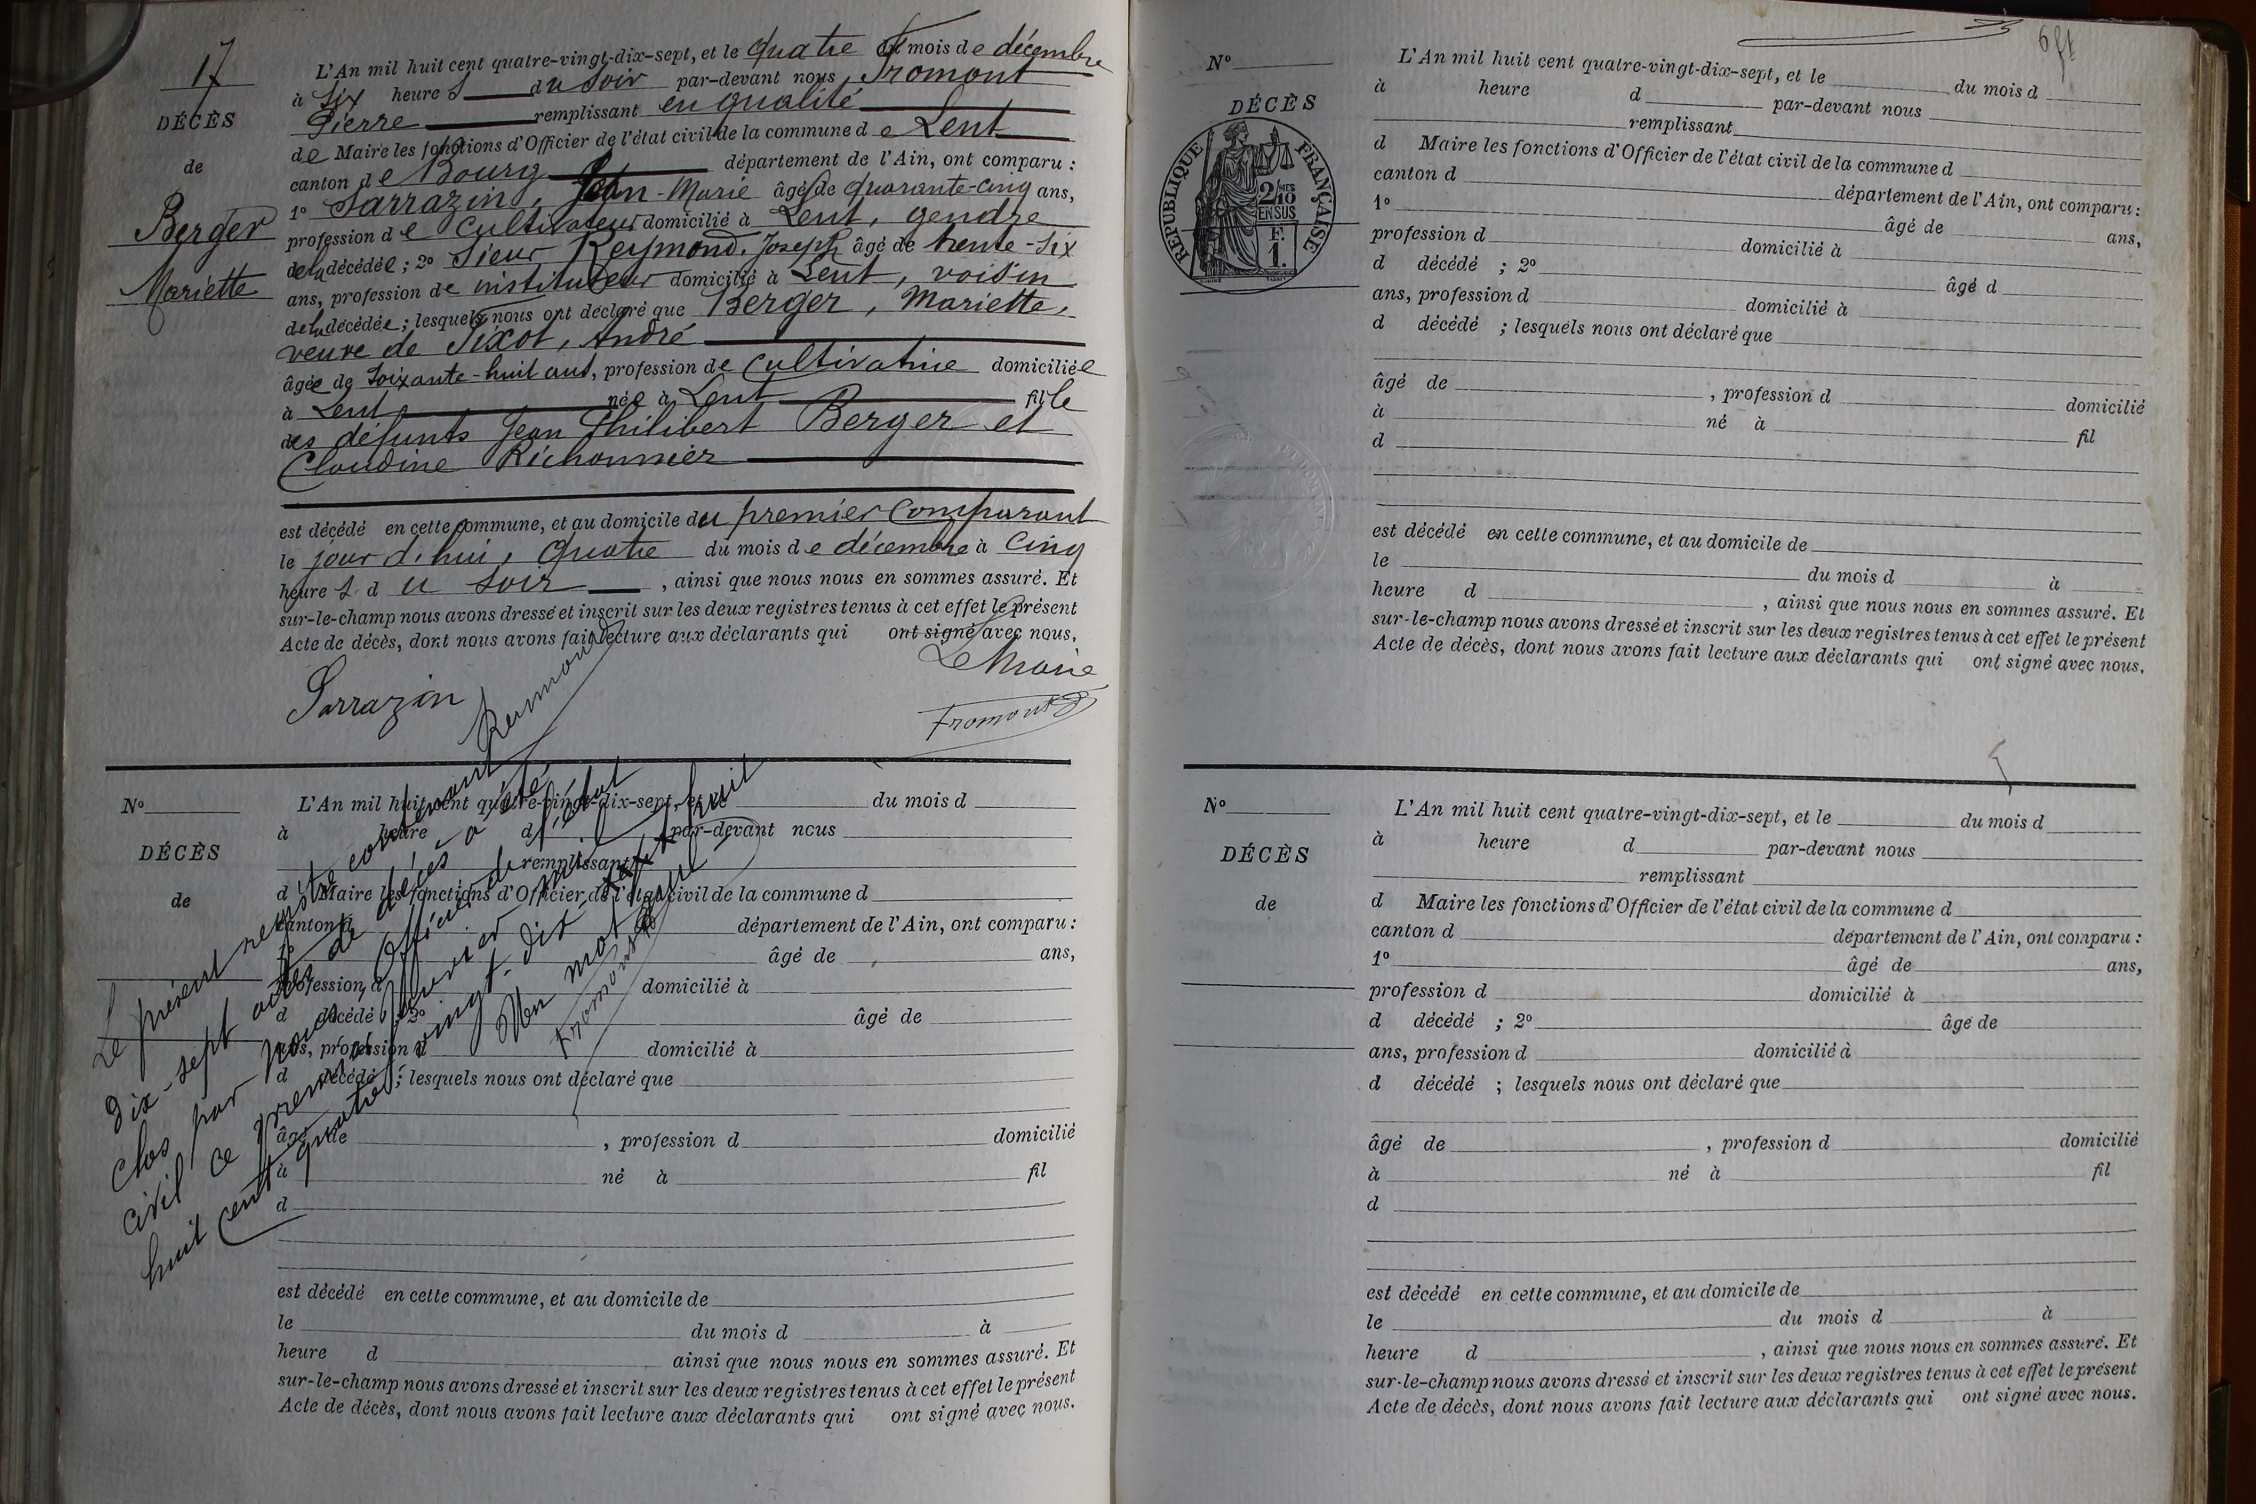 17
DÉCÈS
de
Berger
Mariette
L'An mil huit cent quatre-vingt-dix-sept, et le quatre du mois de décembre
à Six heures du soir par-devant nous, Fromont
Pierre remplissant en qualité
de Maire les fonctions d'Officier de l'état civil de la commune de Lent
canton de Bourg département de l'Ain, ont comparu :
1° Sarrazin, Jean-Marie âgé de quarante-cinq ans,
profession de cultivateur domicilié à Lent, gendre
de la décédée ; 2° Sieur Reymond, Joseph âgé de trente-six
ans, profession de instituteur domicilié à Lent, voisin
de la décédée ; lesquels nous ont déclaré que Berger, Mariette,
veuve de Sixot, André
âgée de soixante-huit ans, profession de cultivatrice domiciliée
à Lent née à Lent fille
des défunts Jean Philibert Berger et
Claudine Richonnier
est décédé en cette commune, et au domicile du premier comparant
le jour d'hui, quatre du mois de décembre à cinq
heures du soir , ainsi que nous nous en sommes assuré. Et
sur-le-champ nous avons dressé et inscrit sur les deux registres tenus à cet effet le présent
Acte de décès, dont nous avons fait lecture aux déclarants qui ont signé avec nous,
Sarrazin Reymond Le Maire
Fromont
N°
DÉCÈS
de
L'An mil huit cent quatre-vingt-dix-sept, et le du mois d
à heure d par-devant nous
remplissant
d Maire les fonctions d'Officier de l'état civil de la commune d
canton d département de l'Ain, ont comparu :
1° âgé de ans,
profession d domicilié à
d décédé ; 2° âgé de
ans, profession d domicilié à
d décédé ; lesquels nous ont déclaré que
âgé de , profession d domicilié
à né à fil
d
est décédé en cette commune, et au domicile de
le du mois d à
heure d ainsi que nous nous en sommes assuré. Et
sur-le-champ nous avons dressé et inscrit sur les deux registres tenus à cet effet le présent
Acte de décès, dont nous avons fait lecture aux déclarants qui ont signé avec nous.
Le présent registre contenant
dix-sept actes de décès a été
clos par nous, Officier de l'État
civil ce premier janvier mil
huit cent quatre vingt-dix huit
Un mot
Fromont
N°
DÉCÈS
RÉPUBLIQUE FRANÇAISE
2/10 MES
EN SUS
F.
1.
L'An mil huit cent quatre-vingt-dix-sept, et le du mois d
à heure d par-devant nous
remplissant
d Maire les fonctions d'Officier de l'état civil de la commune d
canton d département de l'Ain, ont comparu :
1° âgé de ans,
profession d domicilié à
d décédé ; 2° âgé d
ans, profession d domicilié à
d décédé ; lesquels nous ont déclaré que
âgé de , profession d domicilié
à né à fil
d
est décédé en cette commune, et au domicile de
le du mois d à
heure d , ainsi que nous nous en sommes assuré. Et
sur-le-champ nous avons dressé et inscrit sur les deux registres tenus à cet effet le présent
Acte de décès, dont nous avons fait lecture aux déclarants qui ont signé avec nous.
N°
DÉCÈS
de
L'An mil huit cent quatre-vingt-dix-sept, et le du mois d
à heure d par-devant nous
remplissant
d Maire les fonctions d'Officier de l'état civil de la commune d
canton d département de l'Ain, ont comparu :
1° âgé de ans,
profession d domicilié à
d décédé ; 2° âgé de
ans, profession d domicilié à
d décédé ; lesquels nous ont déclaré que
âgé de , profession d domicilié
à né à fil
d
est décédé en cette commune, et au domicile de
le du mois d à
heure d , ainsi que nous nous en sommes assuré. Et
sur-le-champ nous avons dressé et inscrit sur les deux registres tenus à cet effet le présent
Acte de décès, dont nous avons fait lecture aux déclarants qui ont signé avec nous.